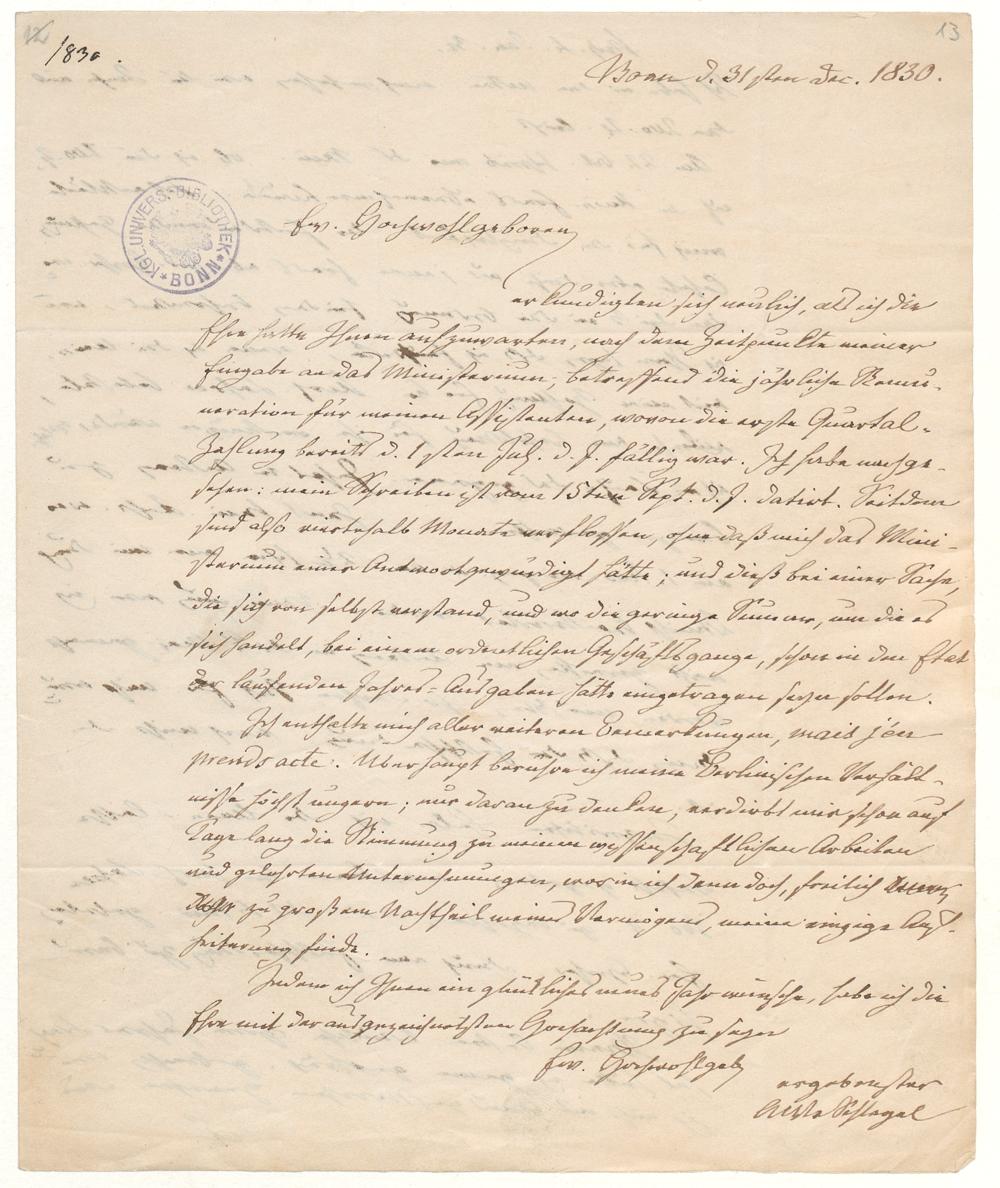 13
1830.
Bonn d. 31sten Dec. 1830.
KGL. UNIVERS.-BIBLIOTHEK BONN
Ew. Hochwohlgeboren
erkundigten sich neulich, als ich die
Ehre hatte Ihnen aufzuwarten, nach dem Zeitpunkte meiner
Eingabe an das Ministerium, betreffend die jährliche Remu-
neration für meinen Assistenten, wovon die erste Quartal-
Zahlung bereits d. 1sten Jul. d. J. fällig war. Ich habe nachge-
sehen: mein Schreiben ist vom 15ten Sept. d. J. datirt. Seitdem
sind also viertehalb Monate verflossen, ohne daß mich das Mini-
sterium einer Antwort gewürdigt hätte; und dieß bei einer Sache,
die sich von selbst verstand, und wo die geringe Summe, um die es
sich handelt, bei einem ordentlichen Geschäftsgange, schon in den Etat
der laufenden Jahres-Ausgaben hätte eingetragen seyn sollen.
Ich enthalte mich aller weiteren Bemerkungen, mais j'en
prends acte. Überhaupt berühre ich meine Berlinischen Verhält-
nisse höchst ungern; nur daran zu denken, verdirbt mir schon auf
Tage lang die Stimmung zu meinen wissenschaftlichen Arbeiten
und gelehrten Unternehmungen, worin ich denn doch, freilich
zu großem Nachtheil meines Vermögens, meine einzige Auf-
heiterung finde.
Indem ich Ihnen ein glückliches neues Jahr wünsche, habe ich die
Ehre mit der ausgezeichnetsten Hochachtung zu seyn
Ew. Hochwohlgeb
ergebenster
AWv Schlegel